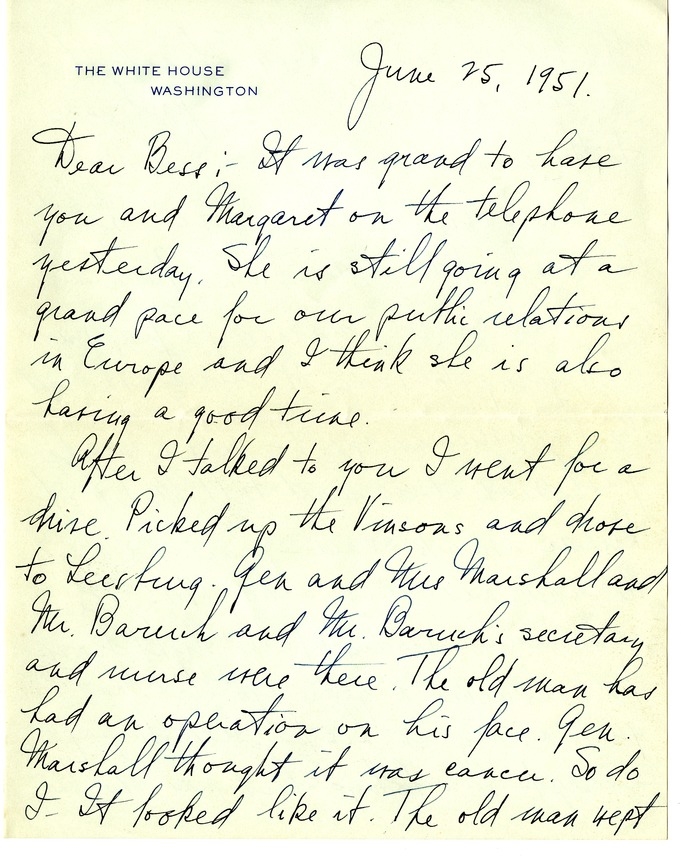 THE WHITE HOUSE
WASHINGTON
June 25, 1951.
Dear Bess:- It was grand to have
you and Margaret on the telephone
yesterday. She is still going at a
grand pace for our public relations
in Europe and I think she is also
having a good time.
After I talked to you I went for a
drive. Picked up the Vinsons and drove
to Leesburg. Gen and Mrs Marshall and
Mr. Baruch and Mr. Baruch's secretary
and nurse were there. The old man has
had an operation on his face. Gen.
Marshall thought it was cancer. So do
I- It looked like it. The old man wept